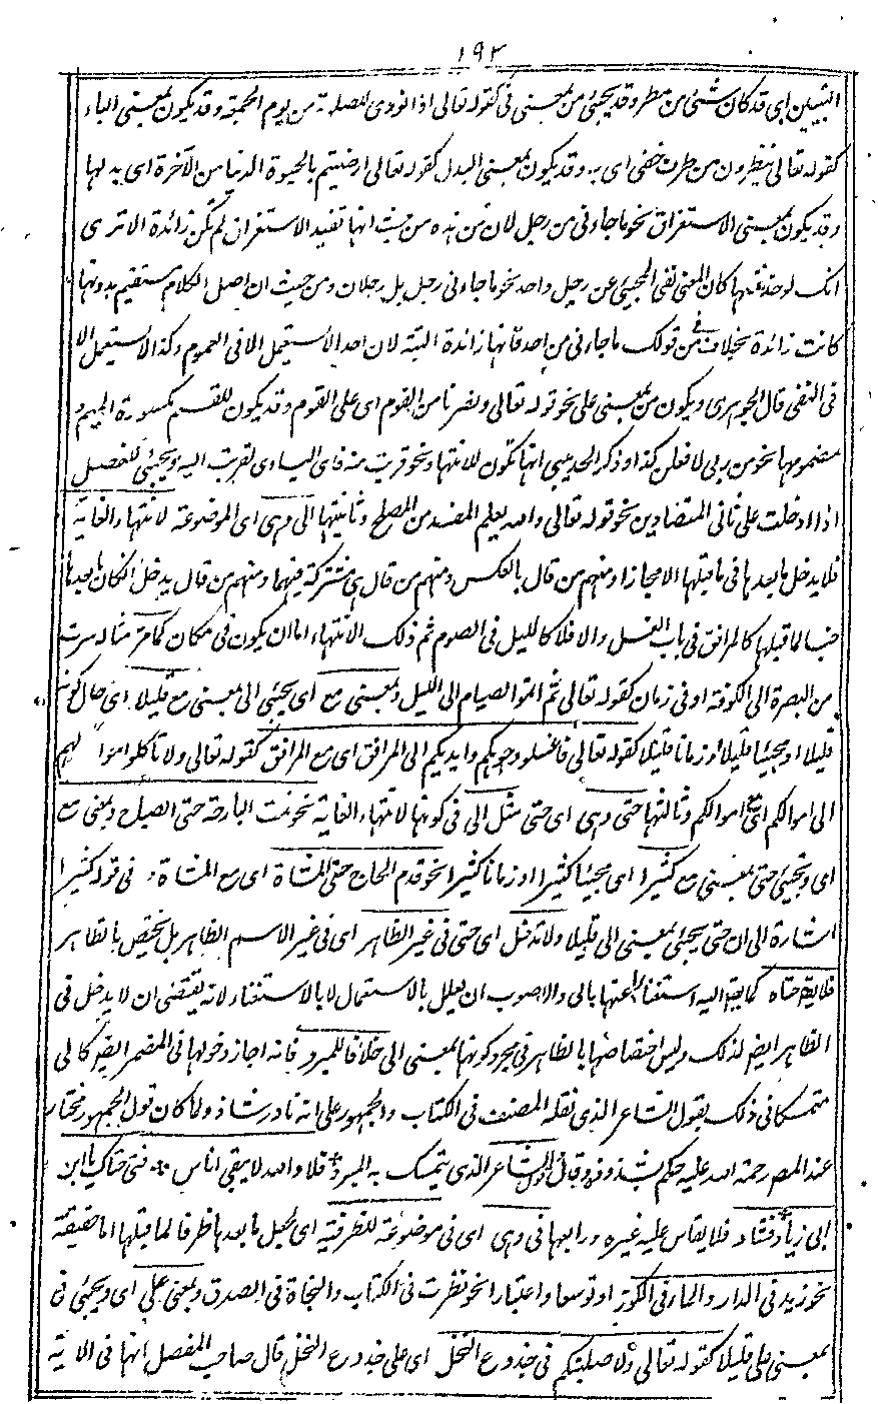 ١٩٢
التبيين اى قد كان شئ من مطر وقد يجيئ من بمعنى فى كقوله تعالى اذا نودى للصلوة من يوم الجمعة وقد يكون بمعنى الباء
كقوله تعالى ينظرون من طرف خفى اى به وقد يكون بمعنى البدل كقوله تعالى ارضيتم بالحيوة الدنيا من الآخرة اى بدلها
وقد يكون بمعنى الاستغراق نحو ما جاءنى من رجل لان من هذه من حيث انها تفيد الاستغراق لم تكن زائدة الا ترى
انك لو حذفتها كان المعنى نفى المجيئ عن رجل واحد نحو ما جاءنى رجل بل رجلان ومن حيث ان اصل الكلام مستقيم بدونها
كانت زائدة بخلاف من فى قولك ما جاءنى من احد فانها زائدة البتة لان احدا لا يستعمل الا فى العموم وكذا لا يستعمل الا
فى النفى قال الجوهرى ويكون من بمعنى على نحو قوله تعالى ونصرنا من القوم اى على القوم وقد يكون للقسم مكسورة الميم و
مضمومها نحو من ربى لافعلن كذا وذكر الحديبى انها تكون للانتهاء نحو قربت منه فانه يساوى تقربت اليه ويجيئ للفصل
اذا دخلت على ثانى المتضادين نحو قوله تعالى والله يعلم المفسد من المصلح وثانيتها الى وهى اى الموضوعة لانتهاء الغاية
فلا يدخل ما بعدها فى ما قبلها الا مجازا ومنهم من قال بالعكس ومنهم من قال هى مشتركة فيهما ومنهم من قال يدخل ان كان ما بعدها
جنسا لما قبلها كالمرافق فى باب الغسل والا فلا كالليل فى الصوم ثم ذلك الانتهاء اما ان يكون فى مكان كما مر مثاله سرت
من البصرة الى الكوفة او فى زمان كقوله تعالى ثم اتموا الصيام الى الليل وبمعنى مع اى يجيئ الى بمعنى مع قليلا اى حال كونه
قليلا او مجيئا قليلا او زمانا قليلا كقوله تعالى فاغسلوا وجوهكم وايديكم الى المرافق اى مع المرافق كقوله تعالى ولا تأكلوا اموالهم
الى اموالكم اى مع اموالكم وثالثها حتى وهى اى حتى مثل الى فى كونها لانتهاء الغاية نحو نمت البارحة حتى الصباح وبمعنى مع
اى ويجيئ حتى بمعنى مع كثيرا اى مجيئا كثيرا او زمانا كثيرا نحو قدم الحاج حتى المشاة اى مع المشاة وفى قوله كثيرا
اشارة الى ان حتى يجيئ بمعنى الى قليلا ولا تدخل اى حتى فى غير الظاهر اى فى غير الاسم الظاهر بل يختص بالظاهر
فلا يقال حتاه كما يقال اليه استغناء عنها بالى والاصوب ان يعلل بالاستعمال لا بالاستغناء لانه يقتضى ان لا يدخل فى
الظاهر ايضا لذلك وليس اختصاصها بالظاهر فى مجرد كونها بمعنى الى خلافا للمبرد فانه اجاز دخولها فى المضمر ايضا كالى
متمسكا فى ذلك بقول الشاعر الذى نقله المصنف فى الكتاب والجمهور على انه نادر شاذ ولما كان قول الجمهور مختارا
عند المصنف رحمة الله عليه حكم بشذوذه وقال قول الشاعر الذى يتمسك به المبرد فلا والله لا يبقى اناس * فتى حتاك يا ابن
ابى زياد فشاذ فلا يقاس عليه غيره ورابعها فى وهى اى فى موضوعة للظرفية اى لجعل ما بعدها ظرفا لما قبلها اما حقيقة
نحو زيد فى الدار والماء فى الكوز او توسعا واعتبارا نحو نظرت فى الكتاب والنجاة فى الصدق وبمعنى على اى ويجيئ فى
بمعنى على قليلا كقوله تعالى ولاصلبنكم فى جذوع النخل اى على جذوع النخل قال صاحب المفصل انها فى الآية